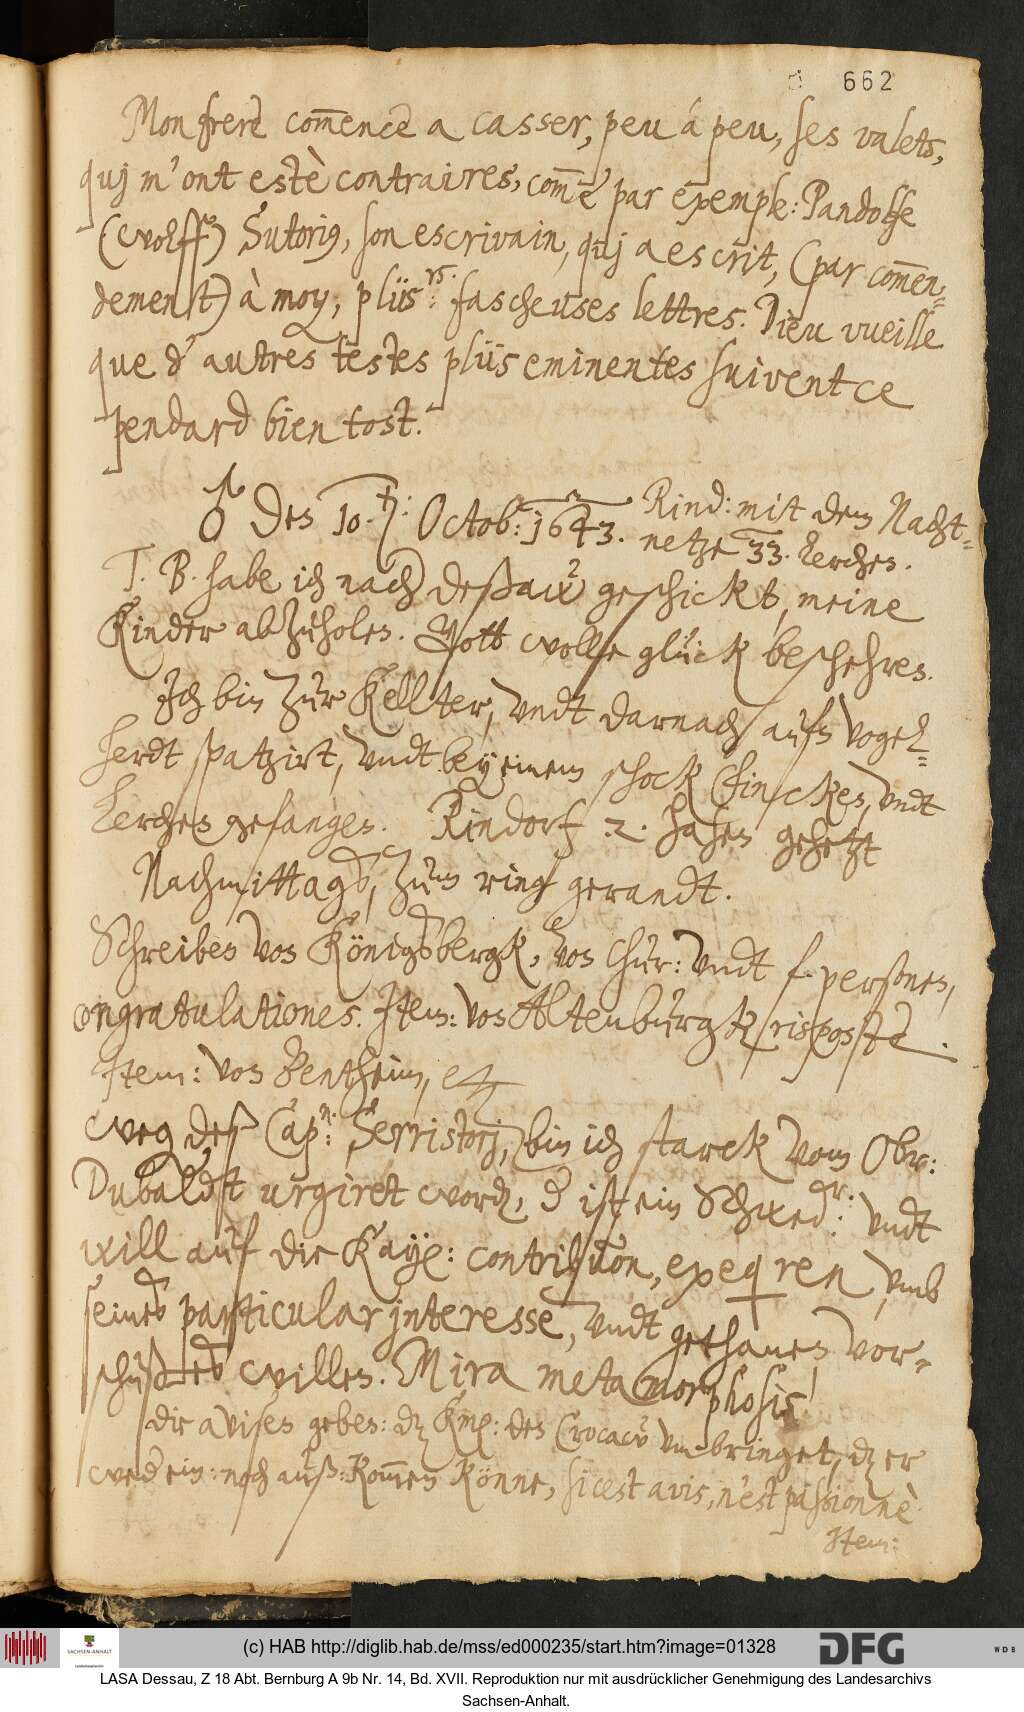 662
Mon frere com̄ence a casser, peu á peu, ses valets,
quj m'ont estè contraires, com̄e par exemple: Pandolfe
(Wolff) Sutorig, son escrivain, quj a escrit, (par com̄en-
dement) à moy, plüs:rs. fascheuses lettres. Dieu vueille
que d'autres testes plüs eminentes suivent ce
pendard bien tost.
♂ den 10.t: Octob: 1643. Rind: mit dem Nacht-
netze 33. Lerchen.
J. B. habe ich nach Deßaw geschickt, meine
Kinder abzuholen. Gott wolle glück beschehren.
Jch bin zur Kellter, vndt darnach aufn Vogel-
herdt spatzirt, vndt bey einem schock Fincken, vndt
Lerchen gefangen. Rindorf .2. hasen gehetzt
Nachmittags, zum ring gerandt.
Schreiben von Königsbergk, von Chur: vndt f. personen,
congratulationes. Jtem: von Altenburgk risposte.
Jtem: von Bentheim, etc
Weg. des Cap:n. Serristorj, bin ich starck vom Obr:
Dubaldst urgiret word, d ist ein Schwed:er. vndt
will auf die Kay: contribution, exeq ren, vmb
seines particular jnteresse, vndt gethanen vor-
schußes willen. Mira metamorphosis!
die avisen geben: dz Km: den Crocaw vmbringet, dz er
wed ein: noch auß: kom̄en könne, si cest avis, n'est passionnè
Jtem:
(c) HAB http://diglib.hab.de/mss/ed000235/start.htm?image=01328
SACHSEN-ANHALT
DFG
WDB
LASA Dessau, Z 18 Abt. Bernburg A 9b Nr. 14, Bd. XVII. Reproduktion nur mit ausdrücklicher Genehmigung des Landesarchivs
Sachsen-Anhalt.